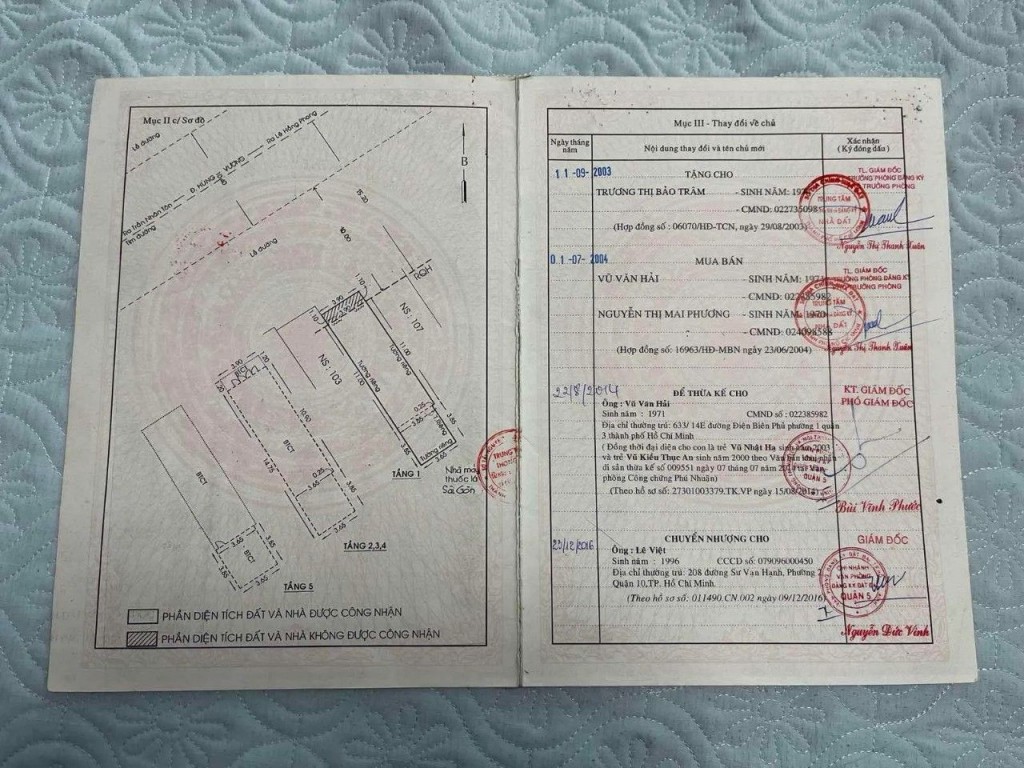 Mục II c/ Sơ đồ
Lề đường
Ra Lê Hồng Phong
Đ. HÙNG VƯƠNG
Ra Trần Nhân Tôn
Tim đường
Lề đường
B
RQH
NS - 107
NS - 103
3.90
Tường riêng
11.00
11.00
Tường riêng
0.25
3.55
3.65
Tường riêng
TẦNG 1
Nhà máy
thuốc lá
Sài Gòn
3.90
BTCT
1.20
1.20
10.90
BTCT
14.75
0.25
3.65
3.85
3.65
TẦNG 2,3,4
BTCT
3.65
BTCT
3.85
3.55
3.65
TẦNG 5
PHẦN DIỆN TÍCH ĐẤT VÀ NHÀ ĐƯỢC CÔNG NHẬN
PHẦN DIỆN TÍCH ĐẤT VÀ NHÀ KHÔNG ĐƯỢC CÔNG NHẬN
Mục III - Thay đổi về chủ
Ngày tháng
năm
Nội dung thay đổi và tên chủ mới
Xác nhận
( Ký đóng dấu )
11-09-2003
TẶNG CHO
TRƯƠNG THỊ BẢO TRÂM - SINH NĂM:
- CMND: 022735098
(Hợp đồng số : 06070/HĐ-TCN, ngày 29/08/2003)
TL. GIÁM ĐỐC
TRƯỞNG PHÒNG ĐĂNG KÝ
TRƯỞNG PHÒNG
TRUNG TÂM
NHÀ ĐẤT
Nguyễn Thị Thanh Xuân
01-07-2004
MUA BÁN
VŨ VĂN HẢI - SINH NĂM: 1971
- CMND: 022385982
NGUYỄN THỊ MAI PHƯƠNG - SINH NĂM: 1970
- CMND: 024098588
(Hợp đồng số: 16963/HĐ-MBN ngày 23/06/2004)
TL. GIÁM ĐỐC
TRƯỞNG PHÒNG ĐĂNG KÝ
TRƯỞNG PHÒNG
TRUNG TÂM
NHÀ ĐẤT
Nguyễn Thị Thanh Xuân
22/8/2014
ĐỂ THỪA KẾ CHO
Ông : Vũ Văn Hải
Sinh năm : 1971 CMND số : 022385982
Địa chỉ thường trú: 633/ 14E đường Điện Biên Phủ phường 1 quận
3 thành phố Hồ Chí Minh
( Đồng thời đại diện cho con là trẻ Vũ Nhật Hạ sinh năm 2003
và trẻ Vũ Kiều Thục An sinh năm 2000 theo Văn bản khai nhận
di sản thừa kế số 009551 ngày 07 tháng 07 năm 2014 tại Văn
phòng Công chứng Phú Nhuận)
(Theo hồ sơ số: 27301003379.TK.VP ngày 15/08/2014)
KT. GIÁM ĐỐC
PHÓ GIÁM ĐỐC
QUẬN 5
Bùi Vĩnh Phước
22/12/2016
CHUYỂN NHƯỢNG CHO
Ông : Lê Việt
Sinh năm : 1996 CCCD số: 079096000450
Địa chỉ thường trú: 208 đường Sư Vạn Hạnh, Phường 2
Quận 10,TP. Hồ Chí Minh.
(Theo hồ sơ số: 011490.CN.002 ngày 09/12/2016)
GIÁM ĐỐC
CHI NHÁNH
VĂN PHÒNG
ĐĂNG KÝ ĐẤT ĐAI
QUẬN 5
Nguyễn Đức Vinh